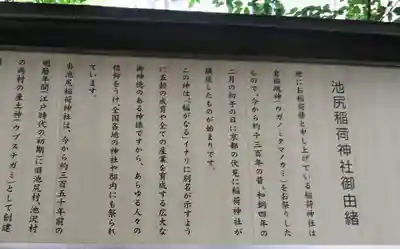 池尻稲荷神社御由緒
世にお稲荷様と申し上げている稲荷神社は
倉稲魂神(ウガノミタマノカミ)をお祭りした
もので、今から約千三百年の昔、和銅四年の
二月の初午の日に京都の伏見に稲荷神社が
鎮座したものが始まりです。
この神は、「稲がなる」イナリに別名が示すよう
に五穀の成育や全ての産業を育成する広大な
御神徳のある神様ですから、あらゆる人々の
信仰をうけ全国各地の神社や邸内にも祭られ
ています。
当池尻稲荷神社は、今から約三百五十年前の
明暦年間(江戸時代の初期)に旧池尻村、池沢村
の両村の産土神(ウブスナガミ)として創建